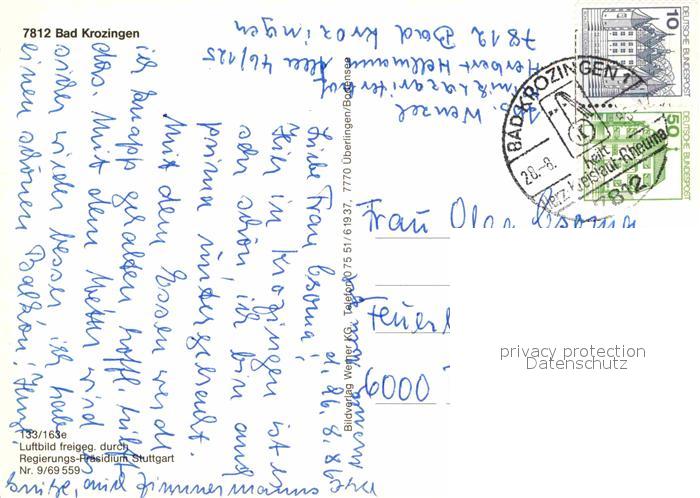 7812 Bad Krozingen
Liebe Frau Csoma! d. 26. 8. 86
Hier in Krozingen ist es
sehr schön, ich bin auch
prima untergebracht.
Mit dem Essen werde
ich knapp gehalten hoffe hilft
das. Mit dem Wetter wird es
wieder besser, ich habe
einen schönen Balkon!
Grüße, auch Zimmermanns
Abs. Wenzel
Herbert Hellmann Allee 46/125
7812 Bad Krozingen
133/163e
Luftbild freigeg. durch
Regierungs-Präsidium Stuttgart
Nr. 9/69 559
Bildverlag Werner KG, Telefon 0 75 51/6 19 37, 7770 Überlingen/Bodensee
10
DEUTSCHE BUNDESPOST
50
DEUTSCHE BUNDESPOST
BAD KROZINGEN 1
28.-8.
heilt
Herz-Kreislauf-Rheuma
7812
Frau Olga Csoma
Feuer
6000
privacy protection
Datenschutz